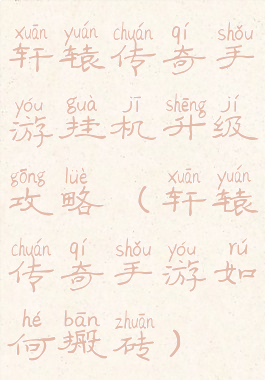 xuān yuán chuán qí shǒu
轩辕传奇手
yóu guà jī shēng jí
游挂机升级
gōng lüè xuān yuán
攻略（轩辕
chuán qí shǒu yóu rú
传奇手游如
hé bān zhuān
何搬砖）